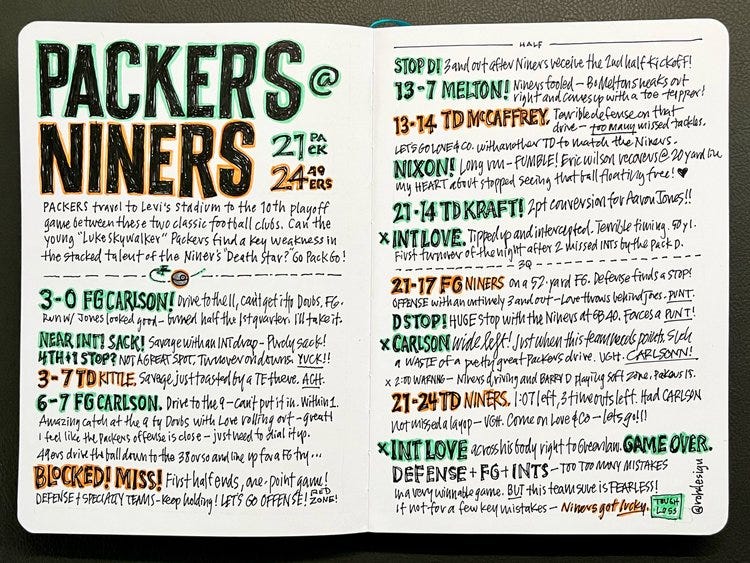 PACKERS @
NINERS
21 PACK
24 49ERS
PACKERS travel to Levi's Stadium to the 10th playoff
game between these two classic football clubs. Can the
young "Luke Skywalker" Packers find a key weakness in
the stacked talent of the Niner's "Death Star? Go Pack Go!
3-0 FG CARLSON! Drive to the 11, can't get it to Doubs, FG.
Run w/ Jones looked good - burned half the 1st quarter. I'll take it.
NEAR INT! SACK! Savage with an INT drop - Purdy sack!
4TH+1 STOP? NOT A GREAT SPOT, Turnover on downs. YUCK!!
3-7 TD KITTLE. Savage just toasted by a TE there. ACH.
6-7 FG CARLSON. Drive to the 9 - Can't put it in. Within 1.
Amazing catch at the 9 by Doubs with Love rolling out - great!
I feel like the Packers offense is close - just need to dial it up.
49ers drive the ball down to the 38 or so and line up for a FG try...
BLOCKED! MISS! First half ends, one-point game!
DEFENSE + SPECIALTY TEAMS - Keep holding! LET'S GO OFFENSE! RED ZONE!
HALF
STOP D! 3 and out after Niners receive the 2nd half kickoff!
13-7 MELTON! Niners fooled - Bo Melton sneaks out
right and comes up with a toe-tapper!
13-14 TD McCAFFREY. Terrible defense on that
drive - too many missed tackles.
LETS GO LOVE & CO. with another TD to match the Niners.
NIXON! Long run - FUMBLE! Eric Wilson recovers @ 20 yard line
My HEART about stopped seeing that ball floating free! ♥
21-14 TD KRAFT! 2pt conversion for Aaron Jones!!
x INT LOVE. Tipped up and intercepted. Terrible timing. 50 yl.
First turnover of the night after 2 missed INTs by the Pack D.
3Q
21-17 FG NINERS on a 52-yard FG. Defense finds a STOP!
OFFENSE with an untimely 3 and out - Love throws behind Jones. PUNT.
D STOP! HUGE stop with the Niners at GB 40. Forces a PUNT!
x CARLSON wide left! Just when this team needs points, such
a WASTE of a pretty great Packers drive. UGH. CARLSONN!
x 2:00 WARNING - Niners driving and BARRY D playing soft zone. Pack on 15.
21-24 TD NINERS. 1:07 left, 3 timeouts left. Had CARLSON
not missed a layup - UGH. Come on Love & Co - lets go!!!
x INT LOVE across his body right to Greenlaw. GAME OVER.
DEFENSE + FG + INTS - TOO TOO MANY MISTAKES
in a very winnable game. BUT this team sure is FEARLESS!
If not for a few key mistakes - Niners got lucky. TOUGH LOSS
@rohdesign